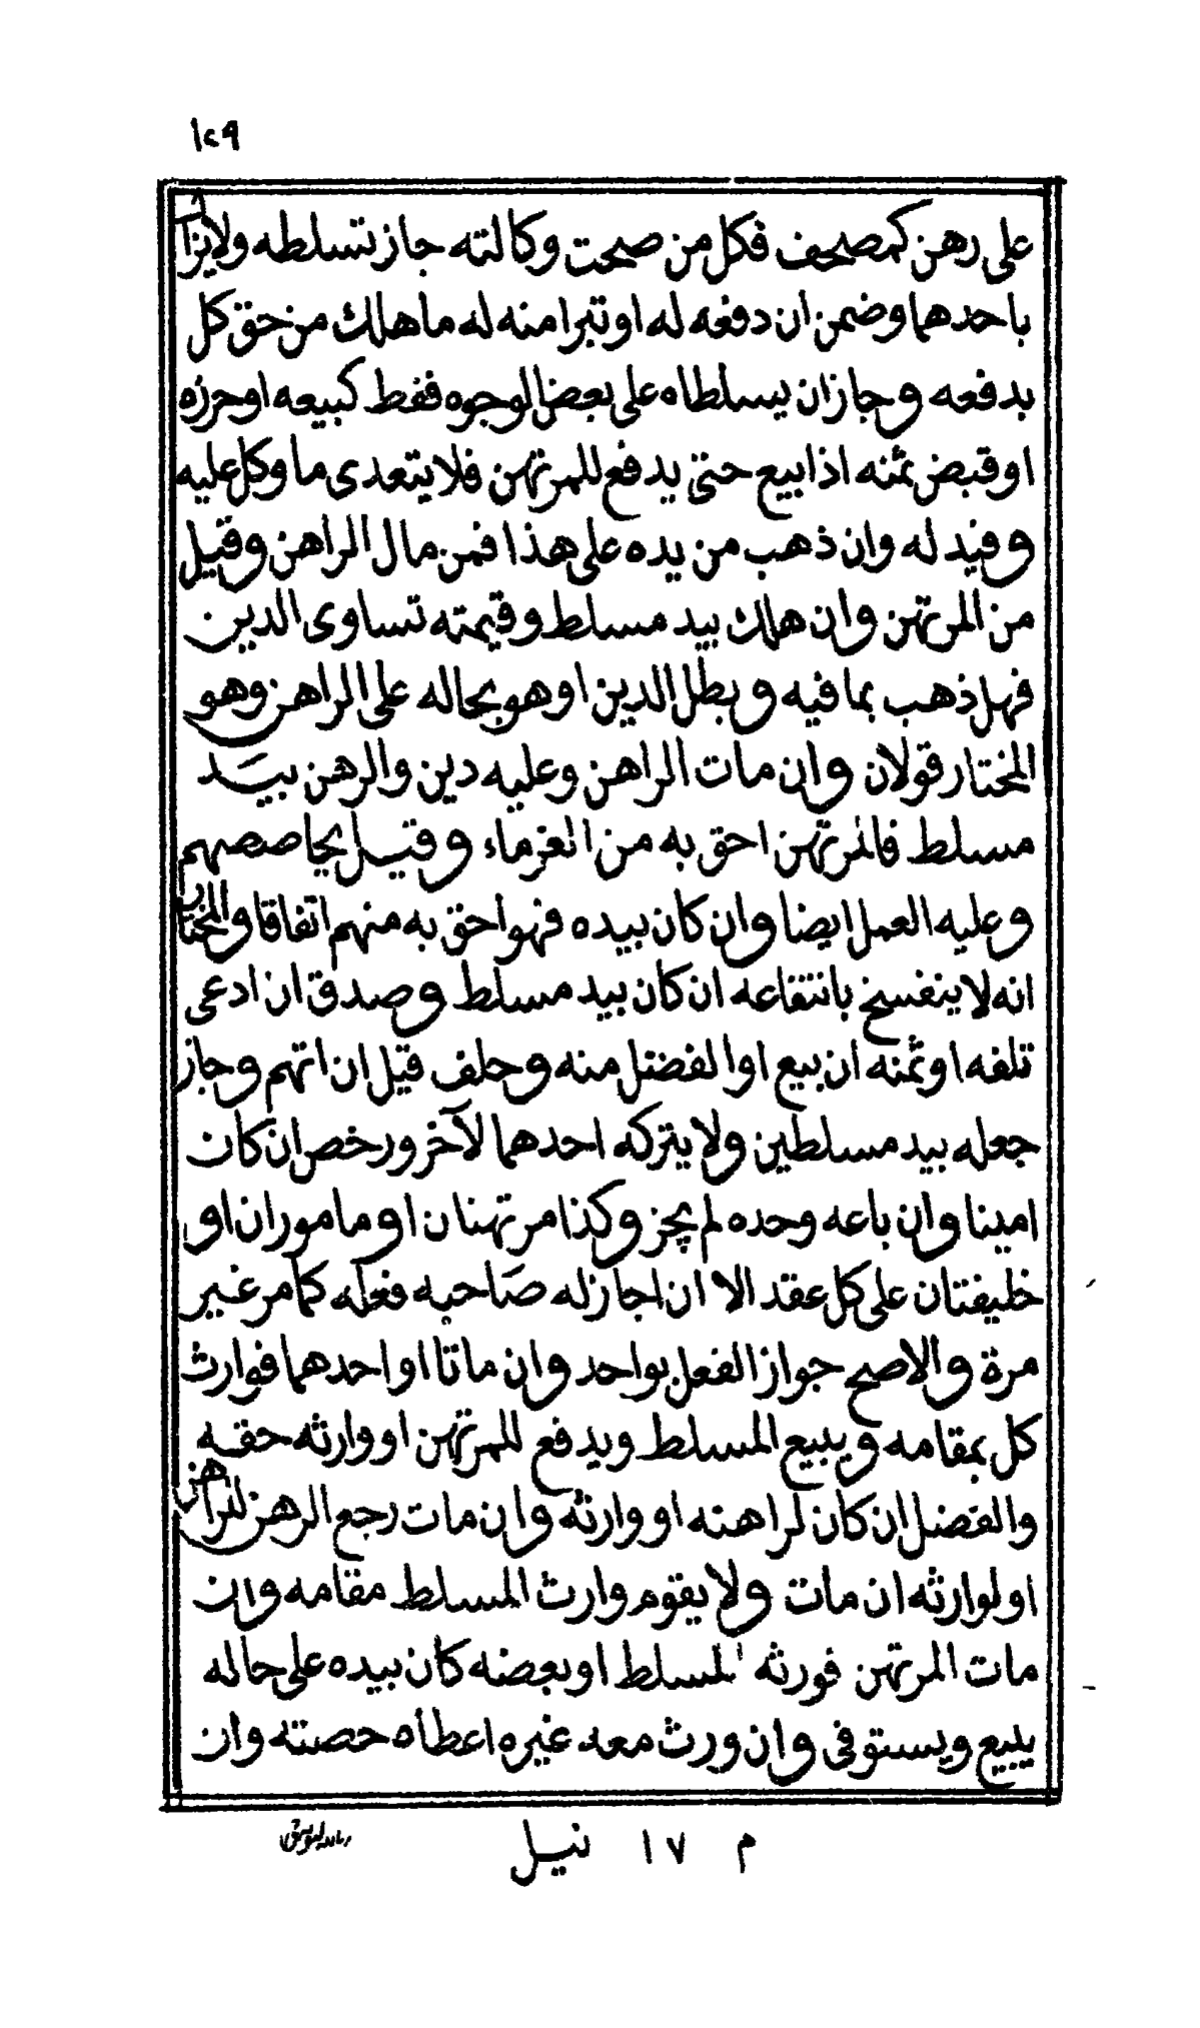 ١٢٩
على رهن كمصحف فكل من صحت وكالته جاز تسلطه ولا يزال
باحدهما وضمن ان دفعه له او تبرا منه له ما هلك من حق كل
بدفعه وجاز ان يسلطاه على بعض الوجوه فقط كبيعه او حرزه
او قبض ثمنه اذا بيع حتى يدفع للمرتهن فلا يتعدى ما وكل عليه
وقيد له وان ذهب من يده على هذا فمن مال الراهن وقيل
من المرتهن وان هلك بيد مسلط وقيمته تساوى الدين
فهل ذهب بما فيه وبطل الدين او هو بحاله على الراهن وهو
المختار قولان وان مات الراهن وعليه دين والرهن بيد
مسلط فالمرتهن احق به من الغرماء وقيل يحاصصهم
وعليه العمل ايضا وان كان بيده فهو احق به منهم اتفاقا والمختار
انه لا ينفسخ بانتفاعه ان كان بيد مسلط وصدق ان ادعى
تلفه او ثمنه ان بيع او الفضل منه وحلف قيل ان اتهم وجاز
جعله بيد مسلطين ولا يتركه احدهما لآخر ورخص ان كان
امينا وان باعه وحده لم يجز وكذا مرتهنان او ماموران او
خليفتان على كل عقد الا ان اجاز له صاحبه فعله كما مر غير
مرة والاصح جواز الفعل بواحد وان ماتا او احدهما فوارث
كل بمقامه ويبيع المسلط ويدفع للمرتهن او وارثه حقه
والفضل ان كان لراهنه او وارثه وان مات رجع الرهن للراهن
او لوارثه ان مات ولا يقوم وارث المسلط مقامه وان
مات المرتهن فورثه المسلط او بعضه كان بيده على حاله
يبيع ويستوفى وان ورث معه غيره اعطاه حصته وان
م ١٧ نيل